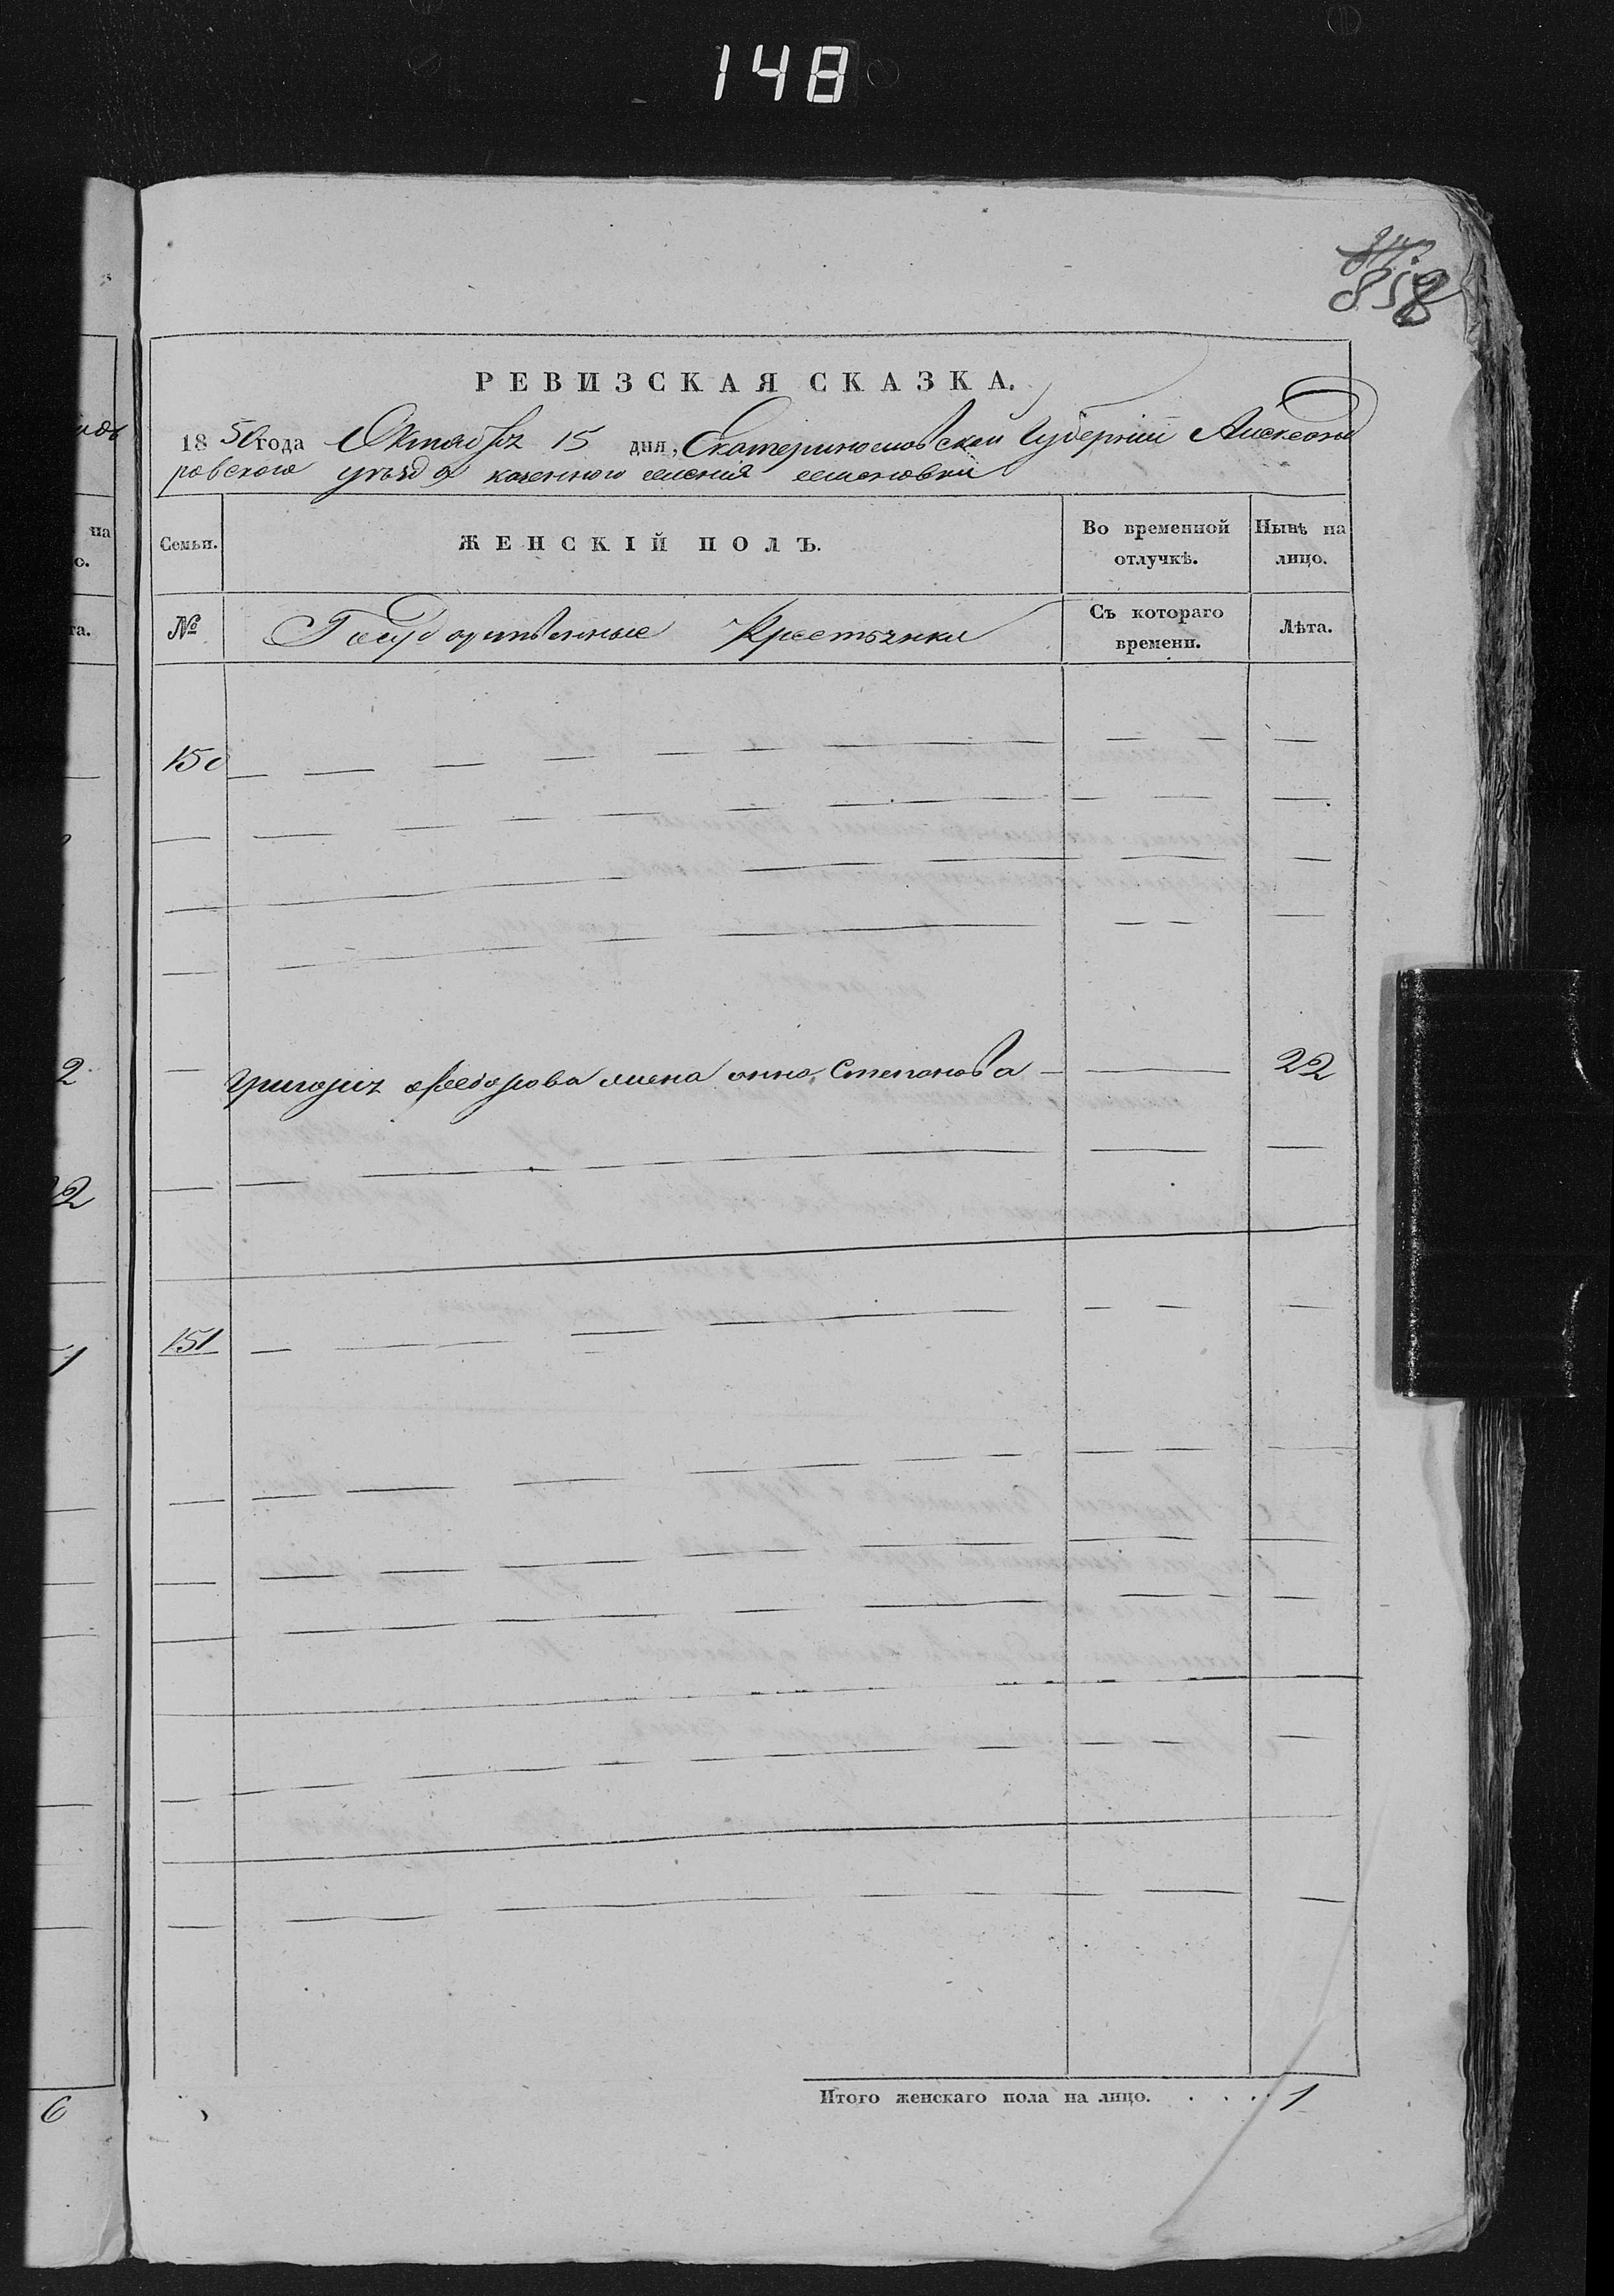 148
858
РЕВИЗСКАЯ СКАЗКА.
1850 года Октября 15 дня, Екатеринославской Губернии Александ
ровского уезда казенного селения семеновки
Семьи. ЖЕНСКІЙ ПОЛЪ. Во временной отлучкѣ. Нынѣ на лицо.
№ Государственные Крестьянки Съ котораго времени. Лѣта.
150
Григорья Федорова жена анна Степанова 22
151
Итого женскаго пола на лицо. . . . . 1
на
о.
та.
2
22
1
6